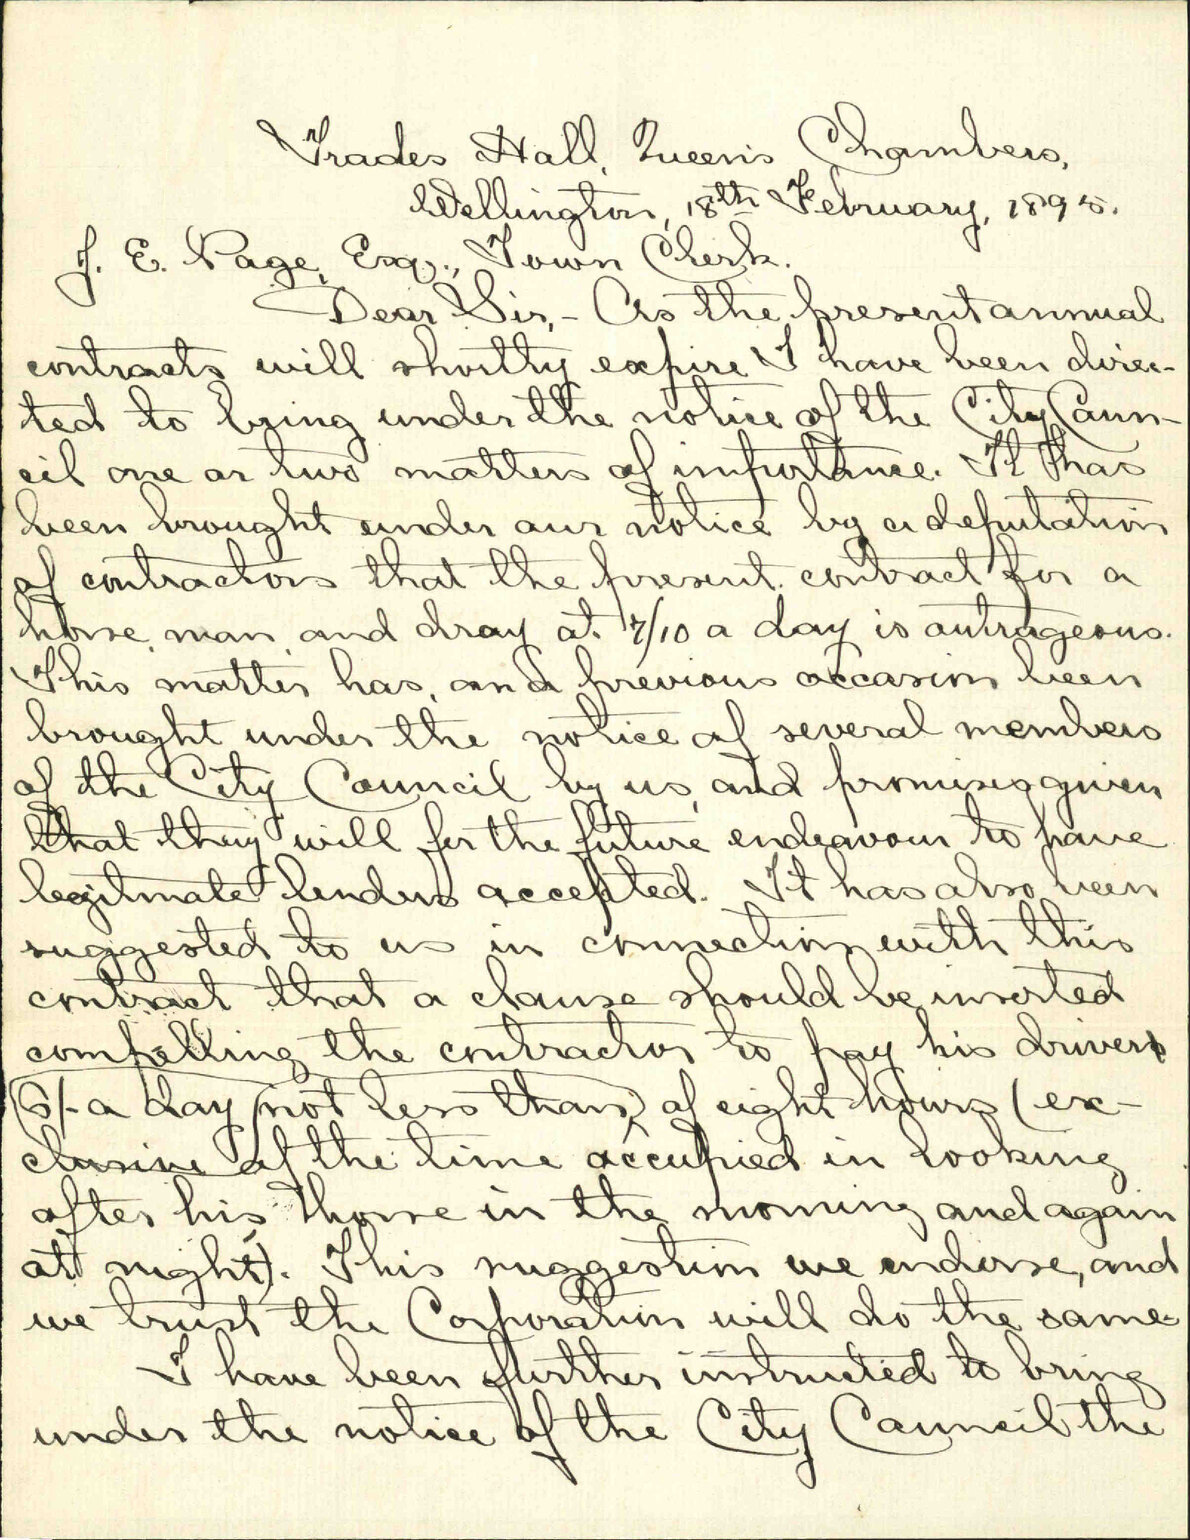 Trades Hall, Queen's Chambers,
Wellington, 18th February, 1895.
J. E. Page, Esq., Town Clerk.
Dear Sir, - As the present annual
contracts will shortly expire I have been direc-
ted to bring under the notice of the City Coun-
cil one or two matters of importance. It has
been brought under our notice by a deputation
of contractors that the present contract for a
horse, man, and dray at 7/10 a day is outrageous.
This matter has, on a previous occasion been
brought under the notice of several members
of the City Council by us, and promises given
that they will for the future endeavour to have
legitimate tenders accepted. It has also been
suggested to us in connection with this
contract that a clause should be inserted
compelling the contractor to pay his drivers
6/- a day (not less than) of eight hours (ex-
clusive of the time occupied in looking
after his horse in the morning and again
at night). This suggestion we endorse, and
we trust the Corporation will do the same.
I have been further instructed to bring
under the notice of the City Council the